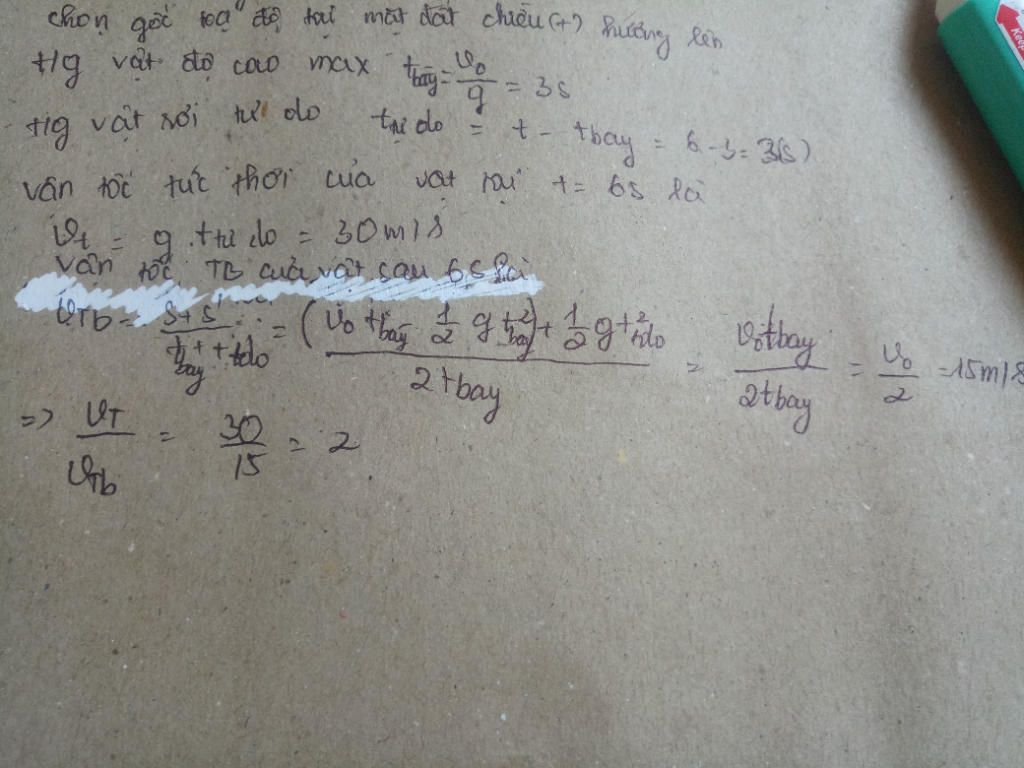 chọn gốc toạ độ tại mặt đất chiều (+) hướng lên
t/g vật độ cao max t_bay = v₀/g = 3s
t/g vật rơi tự do t_tự do = t - t_bay = 6 - 3 = 3(s)
vận tốc tức thời của vật tại t = 6s là
v_t = g . t_tự do = 30m/s
vận tốc TB của vật sau 6s là
v_Tb = (s + s')/(t_bay + t_tdo) = ((v₀ t_bay - 1/2 g t²_bay) + 1/2 g t²_tdo)/(2t_bay) = (v₀ t_bay)/(2t_bay) = v₀/2 = 15m/s
=> v_T/v_Tb = 30/15 = 2